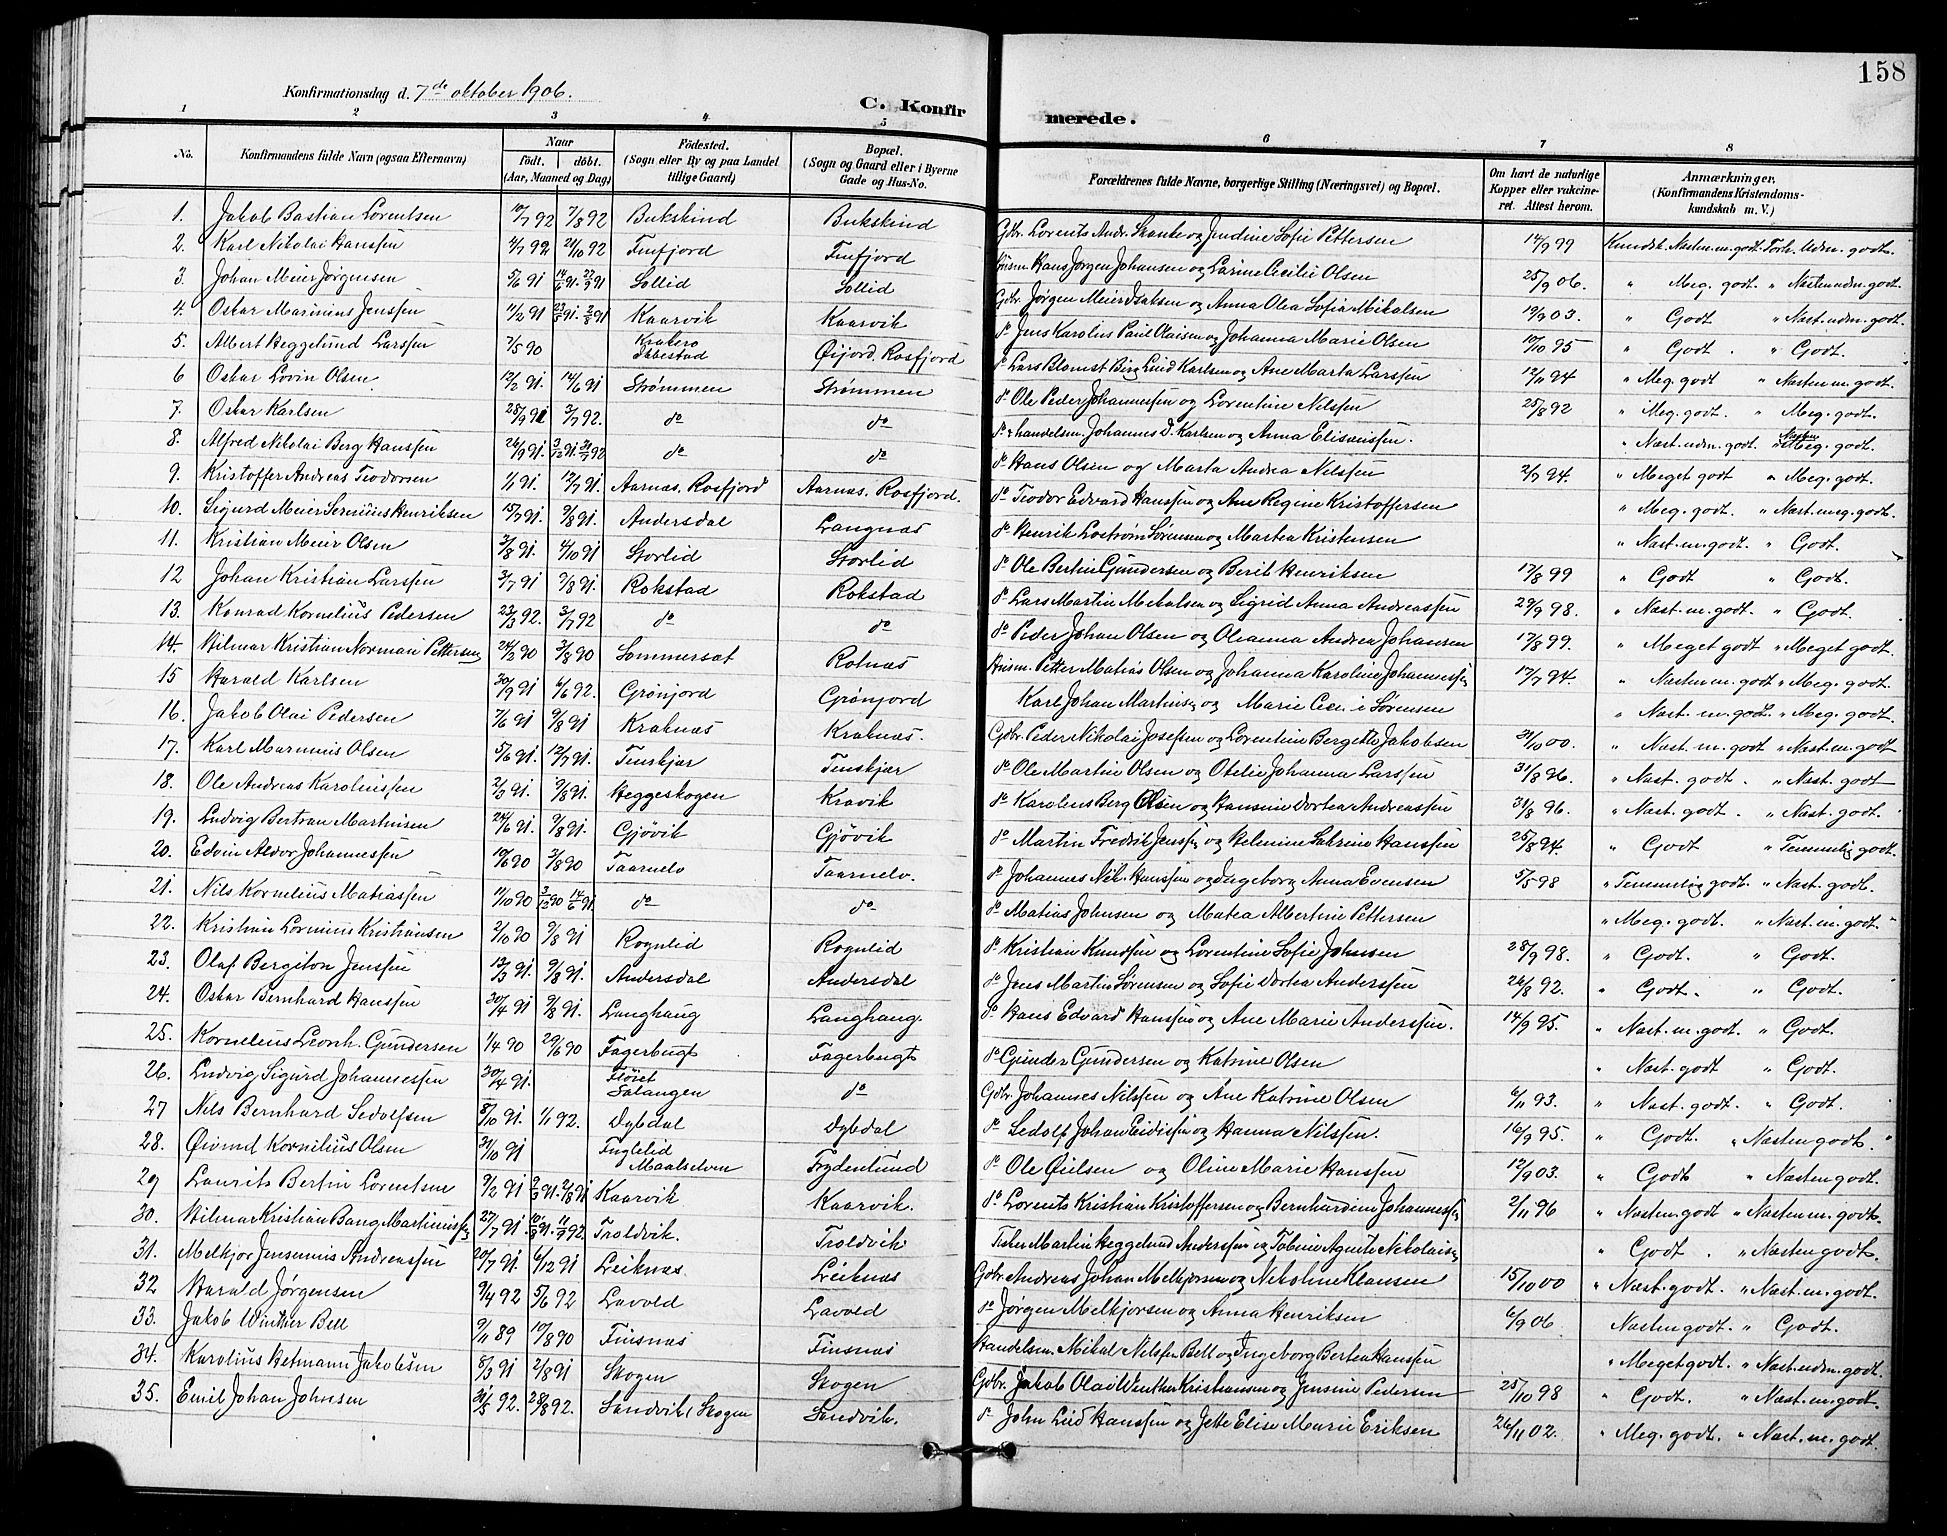 158
Konfirmationsdag d. 7de oktober 1906.
C. Konfirmerede.
1 2 3 4 5 6 7 8
No. Konfirmandens fulde Navn (ogsaa Efternavn) Naar født. døbt. (Aar, Maaned og Dag) Födested. (Sogn eller By og paa Landet tillige Gaard) Bopæl. (Sogn og Gaard eller i Byerne Gade og Hus-No. Forældrenes fulde Navne, borgerlige Stilling (Næringsvei) og Bopæl. Om havt de naturlige Kopper eller vakcineret. Attest herom. Anmærkninger. (Konfirmandens Kristendomskundskab m. V.)
1. Jakob Bastian Lorentsen 10/7 92 7/8 92 Bukskind Bukskind Gbr. Lorents Andr. Skanke og Jendine Sofie Pettersen 14/9 99 Kundsk. Nasten m. godt. Forh. Udm. godt.
2. Karl Nikolai Hanssen 4/7 92 21/10 92 Finfjord Finfjord Husm. Hans Jørgen Johansen og Larine Cecilie Olsen 25/9 06. " Meg. godt " Nasten udm. godt.
3. Johan Meier Jørgensen 5/6 91 14/6 91. 27/9 91 Sollid Sollid Gbr. Jørgen Meier Isaksen og Anna Olea Sofia Mikalsen 19/9 03. " Godt " Nast. udm. godt.
4. Oskar Marinius Jenssen 11/2 91 23/5 91. 2/8 91 Kaarvik Kaarvik do Jens Karolius Paul Olaisen og Johanna Marie Olsen 10/10 95 " Godt. " Godt.
5. Albert Heggelund Larssen 7/5 90 Krakero Ibbestad Øijord. Rosfjord do Lars Blomst Berg Lind Karlsen og Ane Marta Larssen 12/11 94 " Meg. godt " Nasten m. godt.
6 Oskar Lovin Olsen 12/2 91. 14/6 91 Strømmen Strømmen do Ole Peder Johannessen og Lorentine Nilssen 25/8 92 " Meg. godt. " Meg. godt.
7. Oskar Karlsen 28/9 91 3/7 92. do do do & handelsm. Johannes D. Karlsen og Anna Eliseussen. " Nast. udm. godt. " Nasten Meg. godt.
8. Alfred Nikolai Berg Hanssen 26/9 91. 3/12 91. 31/7 92 do do do Hans Olsen og Marta Andrea Nilssen 2/9 94. " Meget godt " Meg. godt.
9. Kristoffer Andreas Teodorsen 1/1 91. 12/7 91. Aarnæs. Rosfjord Aarnæs. Rosfjord. do Teodor Edvard Hanssen og Ane Regine Kristoffersen " Meg. godt. " Nast. meg. godt.
10. Sigurd Meier Sernius Henriksen 15/7 91. 9/8 91. Andersdal Langnæs do Henrik Lostrøm Sørensen og Martea Kristensen " Nast. m. godt. " Godt.
11. Kristian Meier Olsen 3/8 91. 4/10 91 Storlid Storlid do Ole Bertin Gundersen og Berit Henriksen 17/8 99 " Godt " Godt.
12 Johan Kristian Larssen 3/7 91 9/8 91. Rokstad Rokstad do Lars Martin Mikalsen og Sigrid Anna Andreassen 29/9 98. " Nast. m. godt. " Godt.
13. Konrad Kornelius Pedersen 23/3 92. 3/7 92 do do do Peder Johan Olsen og Oleanna Andrea Johansen 17/8 99 " Meget godt " Meget godt.
14. Hilmar Kristian Norman Pettersen 24/2 90 3/8 90 Sommersæt Rotnæs Husm. Petter Matias Olsen og Johanna Karoline Johannessen 17/7 94. " Nasten m. godt " Meg. godt.
15 Harald Karlsen 30/9 91 6/6 92. Grønjord Grønjord Karl Johan Martinsen og Marie Sørensen " Nast. m. godt. " Meg. godt.
16. Jakob Olai Pedersen 7/6 91 9/8 91 Kraknæs Kraknæs. Gbr. Peder Nikolai Josefsen og Lorentine Bergette Jakobsen 31/10 00. " Nast. m. godt " Nast. m. godt
17. Karl Marinius Olsen 5/6 91. 12/7 91. Tenskjær Tenskjær do Ole Martin Olsen og Otelie Johanna Larssen 31/8 96. " Nast. godt. " Nast. godt
18. Ole Andreas Karolinssen 2/3 91. 9/8 91. Heggeskogen Kravik do Karolius Berg Olsen og Hansine Dortea Andreassen 31/8 96. " Nast. godt. " Nast. godt.
19. Ludvig Bertran Martinsen 24/6 91. 9/8 91. Gjøvik Gjøvik do Martin Fredrik Jenssen og Helenine Sakrine Hanssen 25/8 94. " Godt " Temmelig godt.
20. Edvin Aldor Johannessen 10/6 90 3/8 90 Taarnelv Taarnelv. do Johannes Nik. Hanssen og Ingeborg Anna Evensen 5/5 98 " Temmelig godt. " Nast. godt.
21. Nils Kornelius Matiassen 11/10 90 3/12 90 14/6 91. do do do Matias Johnsen og Matea Albertine Pettersen " Meg. godt. " Nast. m. godt.
22. Kristian Lornius Kristiansen 2/10 90 9/8 91 Rognlid Rognlid do Kristian Knudsen og Lorentine Sofie Johnsen 28/9 98. " Godt. " Godt.
23. Olaf Bergiton Jenssen 13/3 91. 9/8 91. Andersdal Andersdal do Jens Martin Sørensen og Sofie Dortea Anderssen 26/8 92. " Godt. " Godt.
24. Oskar Bernhard Hanssen 30/4 91 9/8 91. Langhaug Langhaug. do Hans Edvard Hanssen og Ane Marie Anderssen. 14/9 95. " Nast. m. godt. " Godt.
25. Kornelius Leonh. Gundersen 1/4 90 29/6 90 Fagerbugt Fagerbugt do Gunder Gundersen og Katrine Olsen " Nast. godt " Godt.
26. Ludvig Sigurd Johannessen 30/4 91. Fløiet Salangen do Gbr. Johannes Nilssen og Ane Katrine Olsen 6/11 93. " Nast. godt. " Godt.
27 Nils Bernhard Sedolfsen 8/10 91. 1/1 92. Dybdal Dybdal do Sedolf Johan Eidissen og Hanna Nilssen. 16/9 95. " Godt. " Nasten godt.
28. Øivind Kornilius Olsen 31/10 91 Fuglelid Maalselven Frydenlund do Ole Øielsen og Oline Marie Hanssen 12/9 03. " Godt " Nasten godt.
29 Laurits Bertin Lorentsen 9/2 91 2/3 91. 2/8 91 Kaarvik Kaarvik. do Lorents Kristian Kristoffersen og Bernhardine Johannessen 2/11 96 " Nasten godt " Nasten m. godt.
30. Hilmar Kristian Bang Martinussen 27/7 91. 10/8 91. 11/9 92. Troldvik. Troldvik Fisker Martin Heggelund Anderssen og Tobine Agnete Nikolaisen " Godt. " Nasten godt.
31. Melkjor Jensenius Andreassen 20/7 91. 6/12 91 Leiknæs. Leiknæs Gbr. Andreas Johan Melkjorsen og Nikoline Klausen 15/10 00 " Nast. godt. " Nast. m. godt.
32 Harald Jørgensen 9/4 92 5/6 92 Lavold Lavold do Jørgen Melkjorsen og Anna Henriksen 6/9 06 Nasten godt. " Godt.
33. Jakob Winther Bell 9/11 89 10/8 90 Finsnæs Finsnæs Handelsm. Mikal Nilssen Bell og Ingeborg Bertea Hanssen " Meget godt. " Nast. udm. godt.
34. Karolius Hetmann Jakobsen 8/3 91 2/8 91 Skogen Skogen Gbr. Jakob Olai Winther Kristiansen og Jensine Pedersen 25/10 98 " Godt. " Nast. m. godt.
35. Emil Johan Johnsen 31/5 92. 28/8 92. Sandvik, Skogen Sandvik. do John Lind Hanssen og Jette Elise Marie Eriksen 26/11 02. " Meg. godt. " Nast. m. godt.